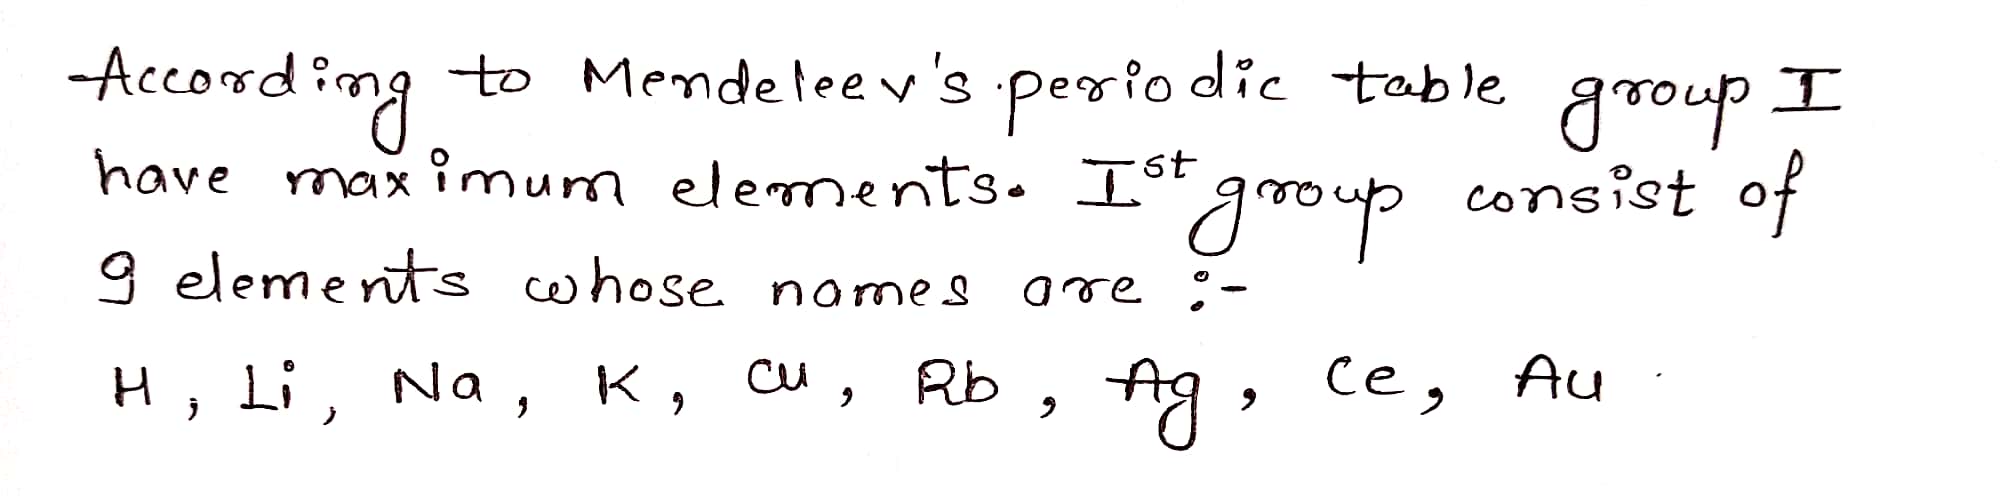 According to Mendeleev's periodic table group I
have maximum elements. Ist group consist of
9 elements whose names are :-
H, Li, Na, K, Cu, Rb, Ag, Ce, Au.